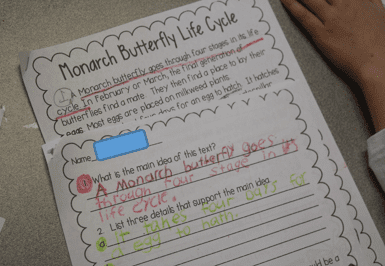 Monarch Butterfly Life Cycle
1 A Monarch butterfly goes through four stages in its life
cycle. In February or March, the final generation of
butterflies find a mate. They then find a place to lay their
eggs. Most eggs are placed on milkweed plants.
days for an egg to hatch. It hatches
Name
1. What is the main idea of this text?
A Monarch butterfly goes
through four stage in its
life cycle.
2. List three details that support the main idea.
a It takes four days for
egg to hath.